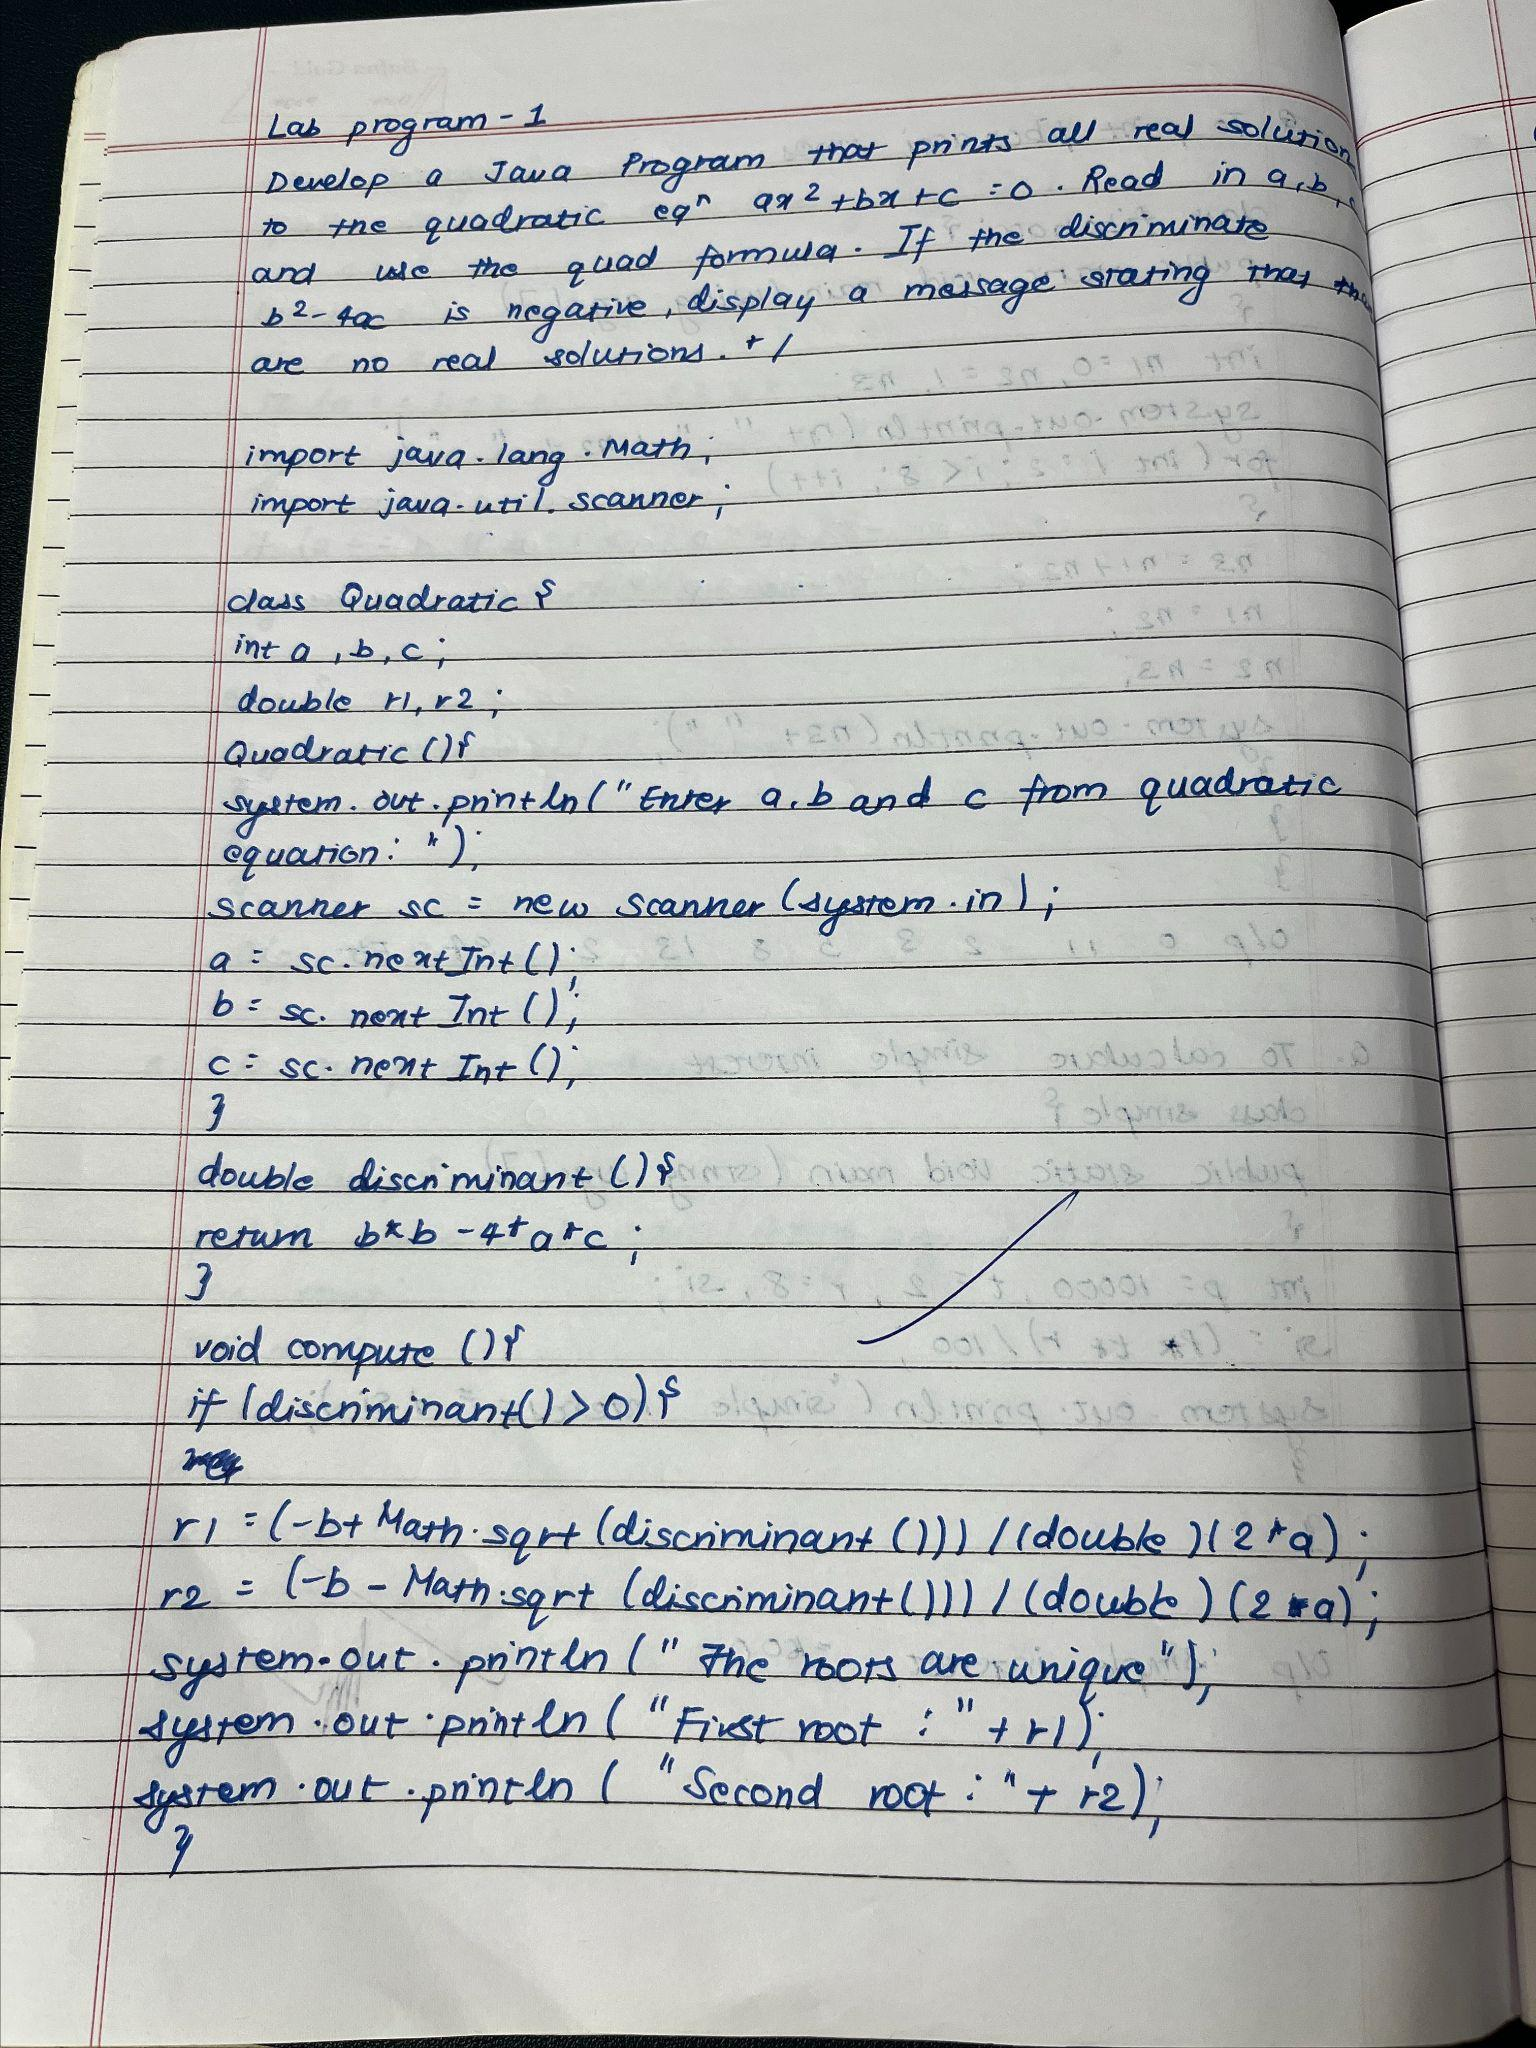 Lab program - 1
Develop a Java Program that prints all real solution
to the quadratic eqⁿ ax²+bx+c =0. Read in a,b,c
and use the quad formula. If the discriminate
b²-4ac is negative, display a message stating that
are no real solutions. */
import java.lang.Math;
import java.util.scanner;
class Quadratic {
int a, b, c;
double r1, r2;
Quadratic (){
system.out.println("Enter a, b and c from quadratic
equation: ");
scanner sc = new scanner (system.in);
a = sc.nextInt();
b = sc.nextInt();
c = sc.nextInt();
}
double discriminant (){
return b*b -4*a*c;
}
void compute (){
if (discriminant()>0){
r1 = (-b+Math.sqrt(discriminant()))/(double)(2*a);
r2 = (-b-Math.sqrt(discriminant()))/(double)(2*a);
system.out.println("The roots are unique");
system.out.println("First root :"+r1);
system.out.println("Second root :"+r2);
}